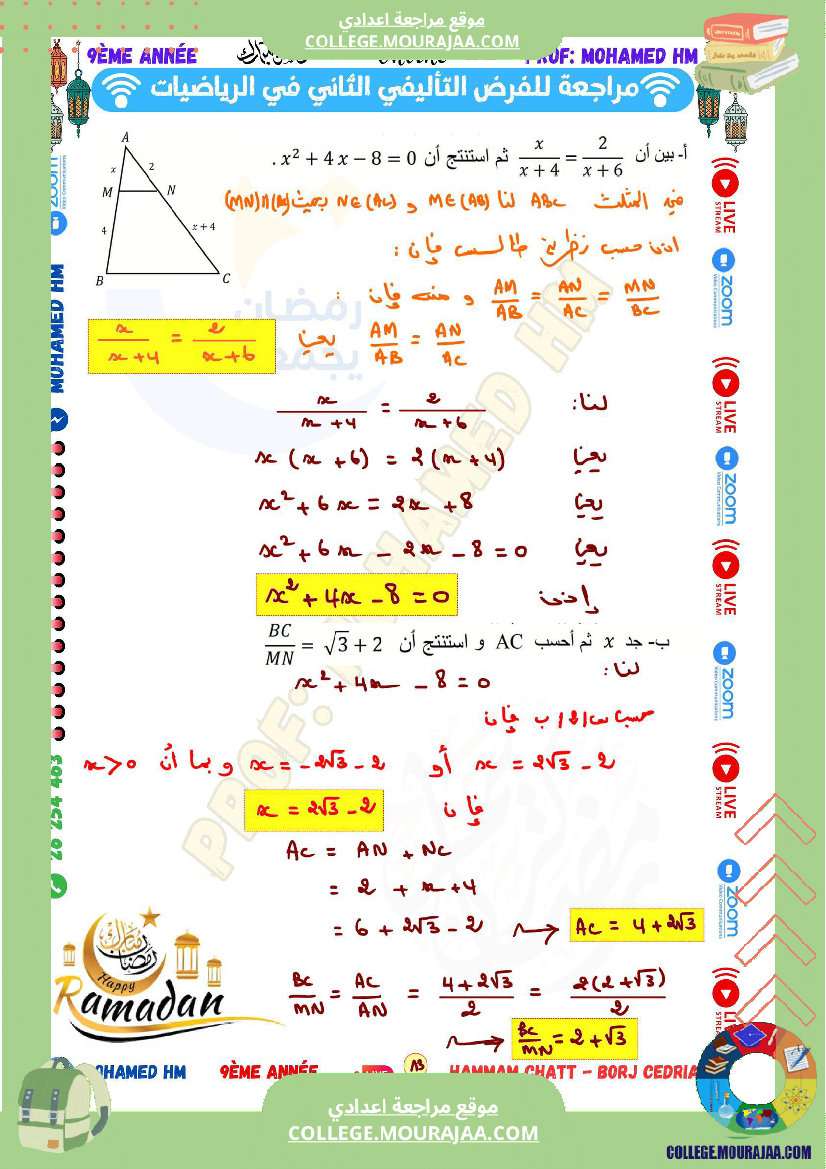 موقع مراجعة اعدادي
COLLEGE.MOURAJAA.COM
9ÈME ANNÉE
PROF: MOHAMED HM
مراجعة للفرض التأليفي الثاني في الرياضيات
A
x
2
M
N
4
x + 4
B
C
أ- بين أن x/(x + 4) = 2/(x + 6) ثم استنتج أن x² + 4x − 8 = 0 .
في المثلث ABC لنا M∈(AB) و N∈(AC) بحيث (MN)//(BC)
اذن حسب نظرية طالس فإن :
AM/AB = AN/AC = MN/BC و منه فإن :
AM/AB = AN/AC يعني x/(x+4) = 2/(x+6)
لنا: x/(x+4) = 2/(x+6)
يعني x(x+6) = 2(x+4)
يعني x² + 6x = 2x + 8
يعني x² + 6x − 2x − 8 = 0
إذن x² + 4x − 8 = 0
ب- جد x ثم أحسب AC و استنتج أن BC/MN = √3 + 2
لنا: x² + 4x − 8 = 0
ب فإن
x = 2√3 − 2 أو x = −2√3 − 2 و بما أن x > 0
فإن x = 2√3 − 2
AC = AN + NC
= 2 + x + 4
= 6 + 2√3 − 2 → AC = 4 + 2√3
BC/MN = AC/AN = (4 + 2√3)/2 = 2(2 + √3)/2
→ BC/MN = 2 + √3
PROF: MOHAMED HM
رمضان
يجمعنا
LIVE
STREAM
zoom
Video Communications
LIVE
STREAM
zoom
Video Communications
LIVE
STREAM
zoom
Video Communications
LIVE
STREAM
zoom
Video Communications
LIVE
zoom
MOHAMED HM
26 254 463
رمضان مبارك
Happy
Ramadan
MOHAMED HM
9ÈME ANNÉE
HAMMAM CHATT - BORJ CEDRIA
موقع مراجعة اعدادي
COLLEGE.MOURAJAA.COM
COLLEGE.MOURAJAA.COM